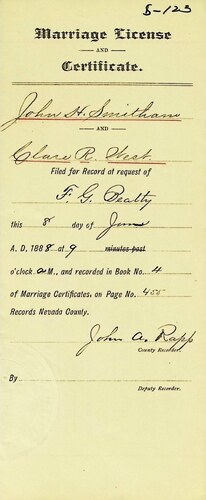 S-123
Marriage License
AND
Certificate.
John H. Smitham
AND
Clara R. West
Filed for Record at request of
F. G. Beatty
this 8 day of June
A. D. 1888 at 9 minutes past
o'clock A M., and recorded in Book No. 4
of Marriage Certificates, on Page No. 455
Records Nevada County.
John A. Rapp
County Recorder.
By
Deputy Recorder.